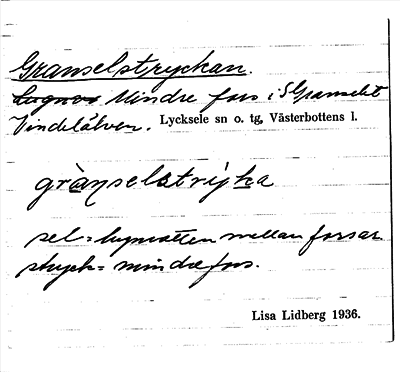 Granselstryckan.
Lugnor Mindre fors i S Granselet
Vindelälven. Lycksele sn o. tg, Västerbottens l.
grànselstrỳka
sel = lugnvatten mellan forsar
stryck = mindre fors.
Lisa Lidberg 1936.